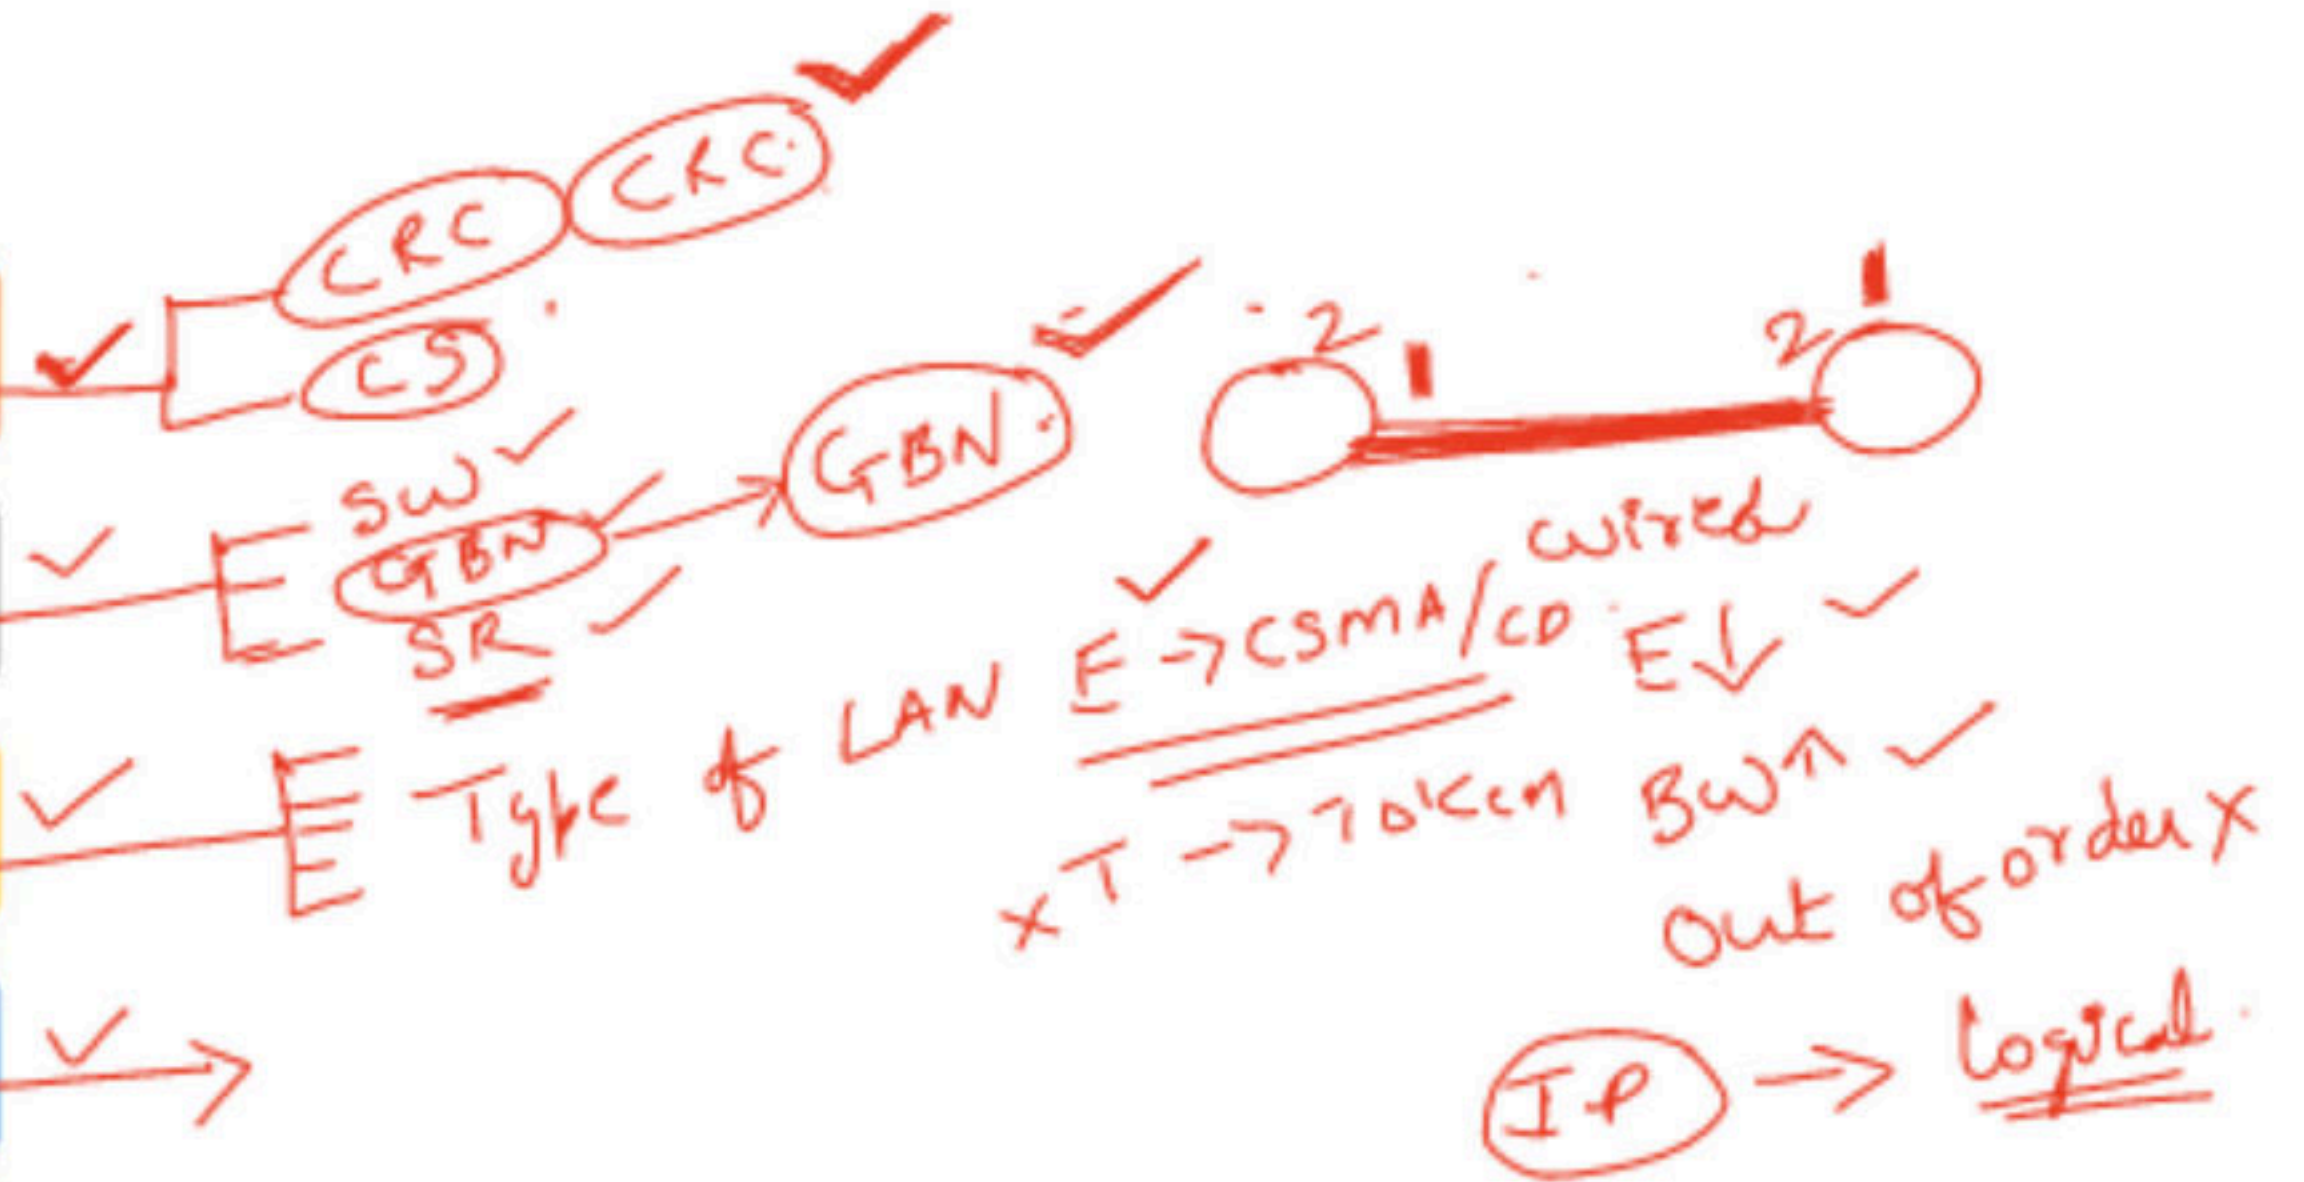 CRC CRC
CS
2 2
SW
GBN GBN
SR
Wired
Type of LAN E → CSMA/CD E↓
x T → Token BW↑
out of order x
IP → Logical